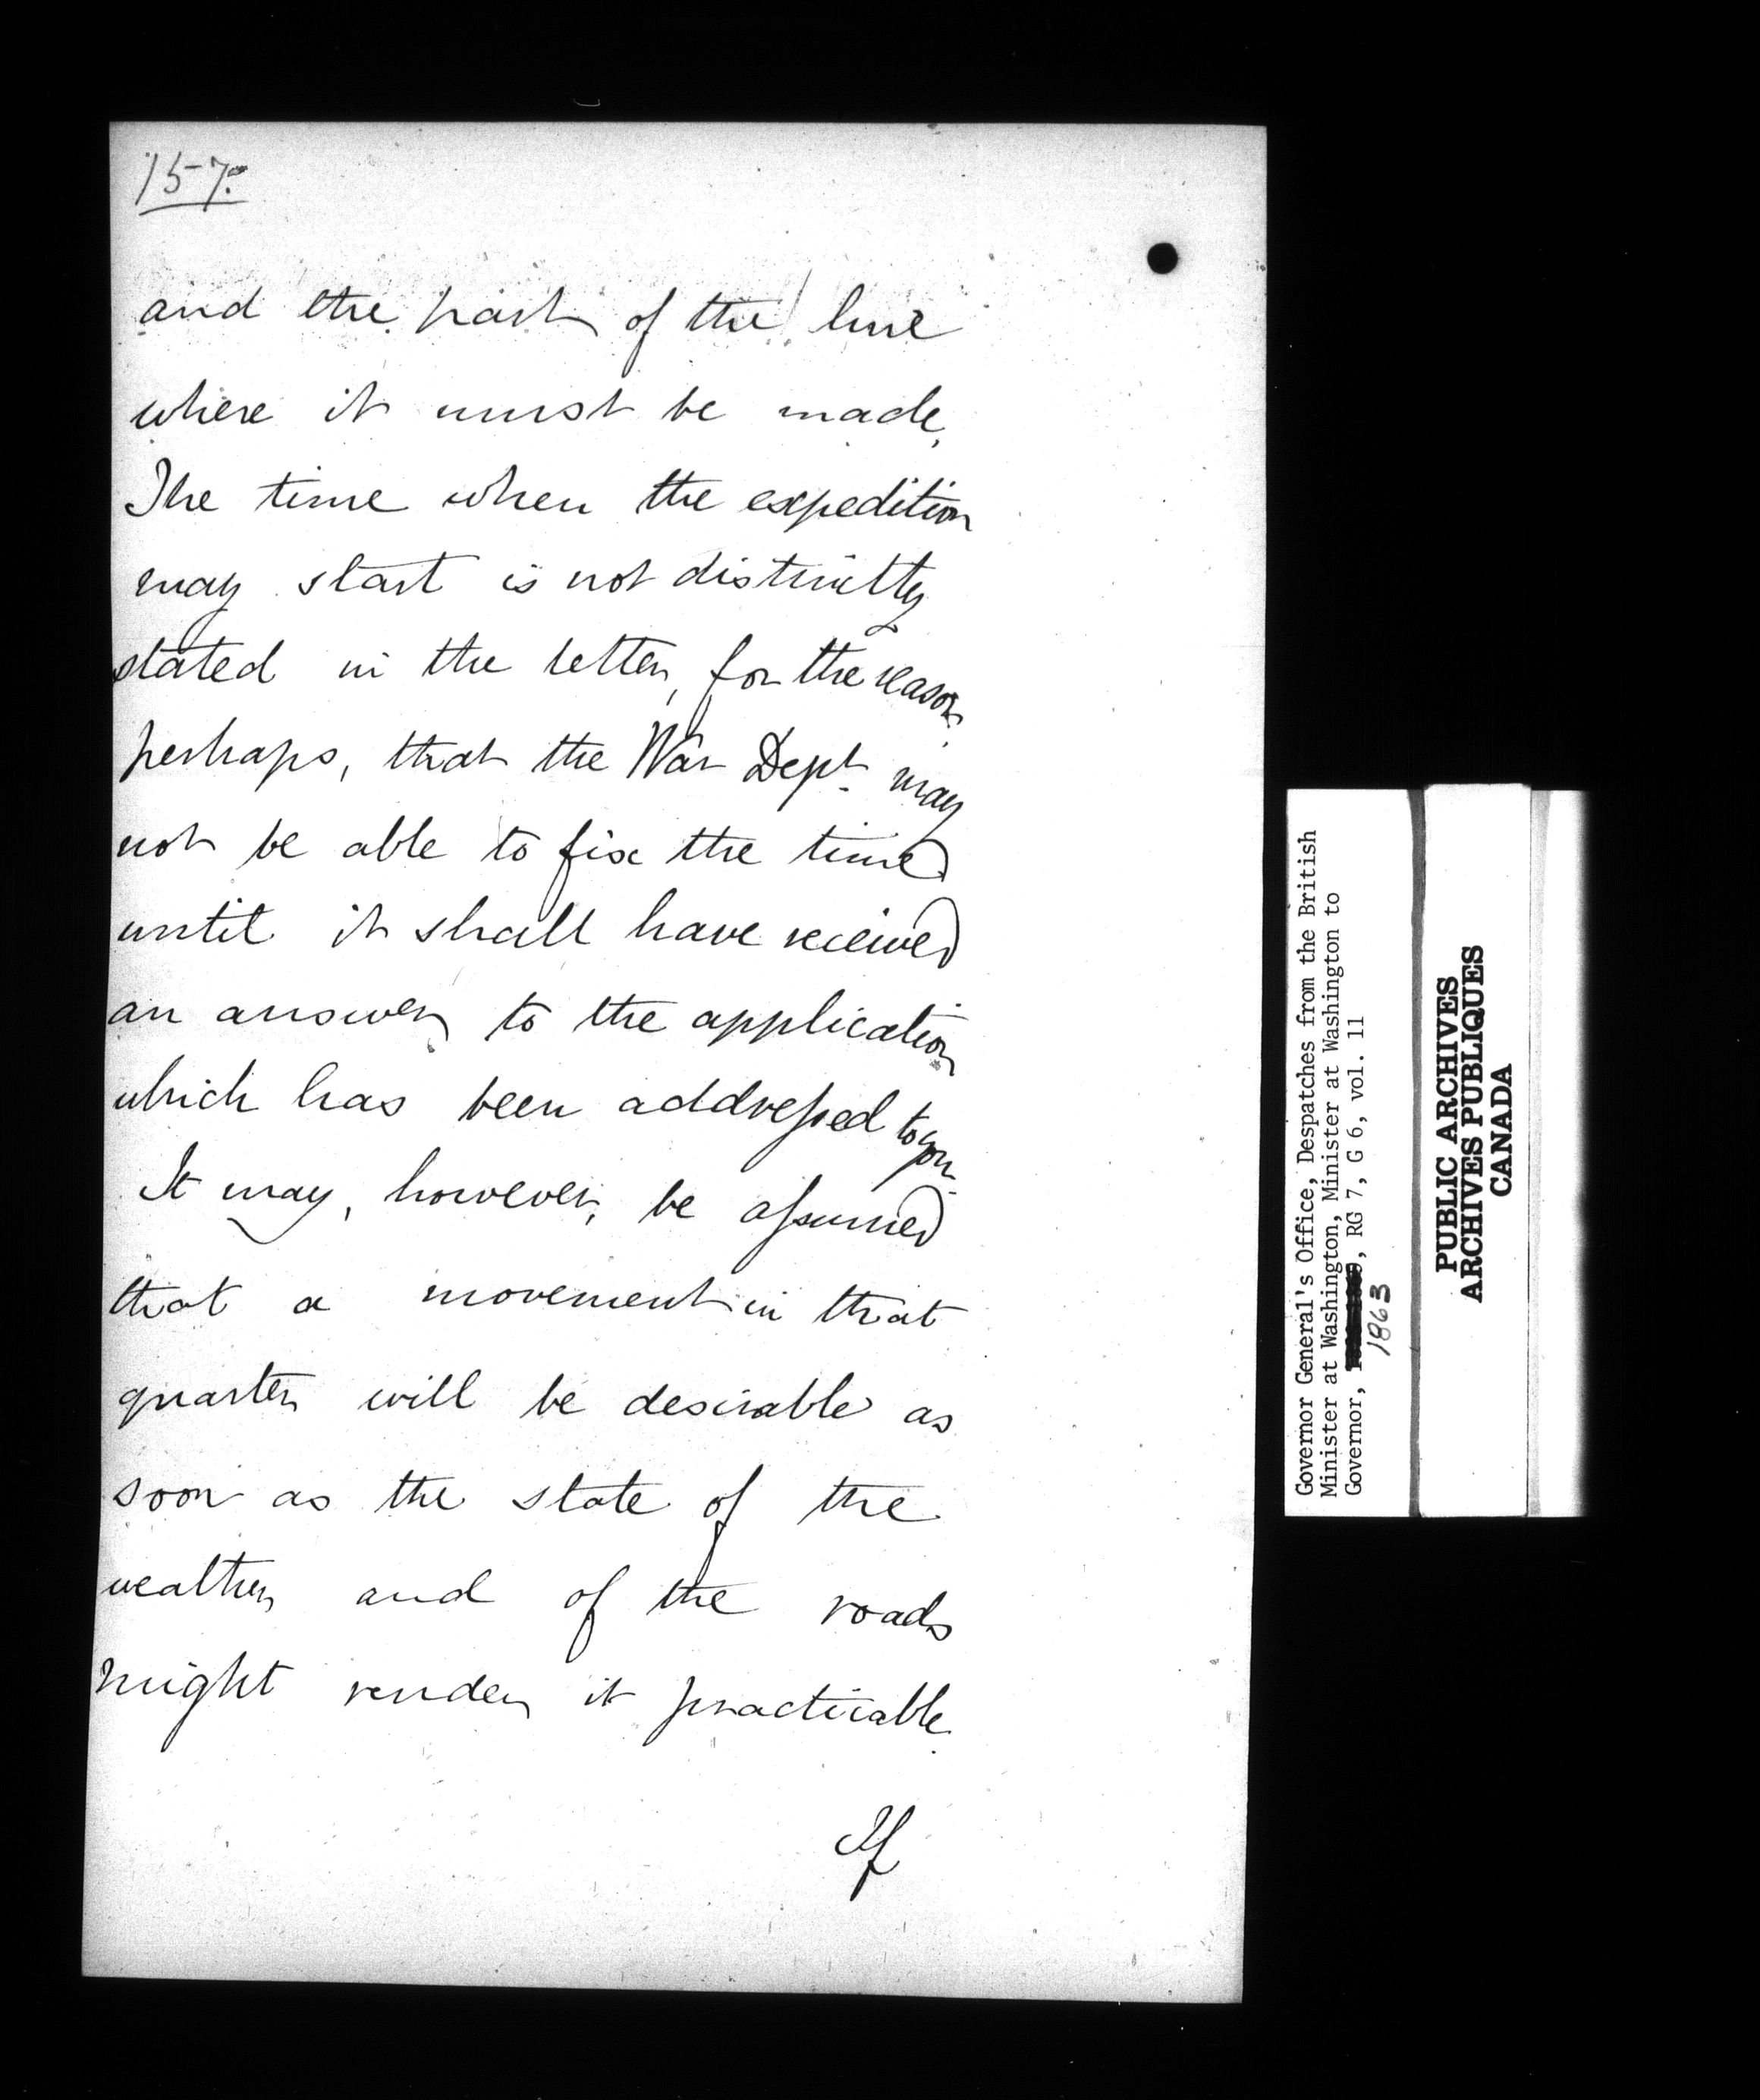 157.
and the part of the line
where it must be made.
The time when the expedition
may start is not distinctly
stated in the letter, for the reason
perhaps, that the War Dept. may
not be able to fix the time
until it shall have received
an answer to the application
which has been addressed to you.
It may, however, be assumed
that a movement in that
quarter will be desirable as
soon as the state of the
weather and of the roads
might render it practicable.
If
Governor General's Office, Despatches from the British
Minister at Washington, Minister at Washington to
Governor, , RG 7, G 6, vol. 11
1863
PUBLIC ARCHIVES
ARCHIVES PUBLIQUES
CANADA